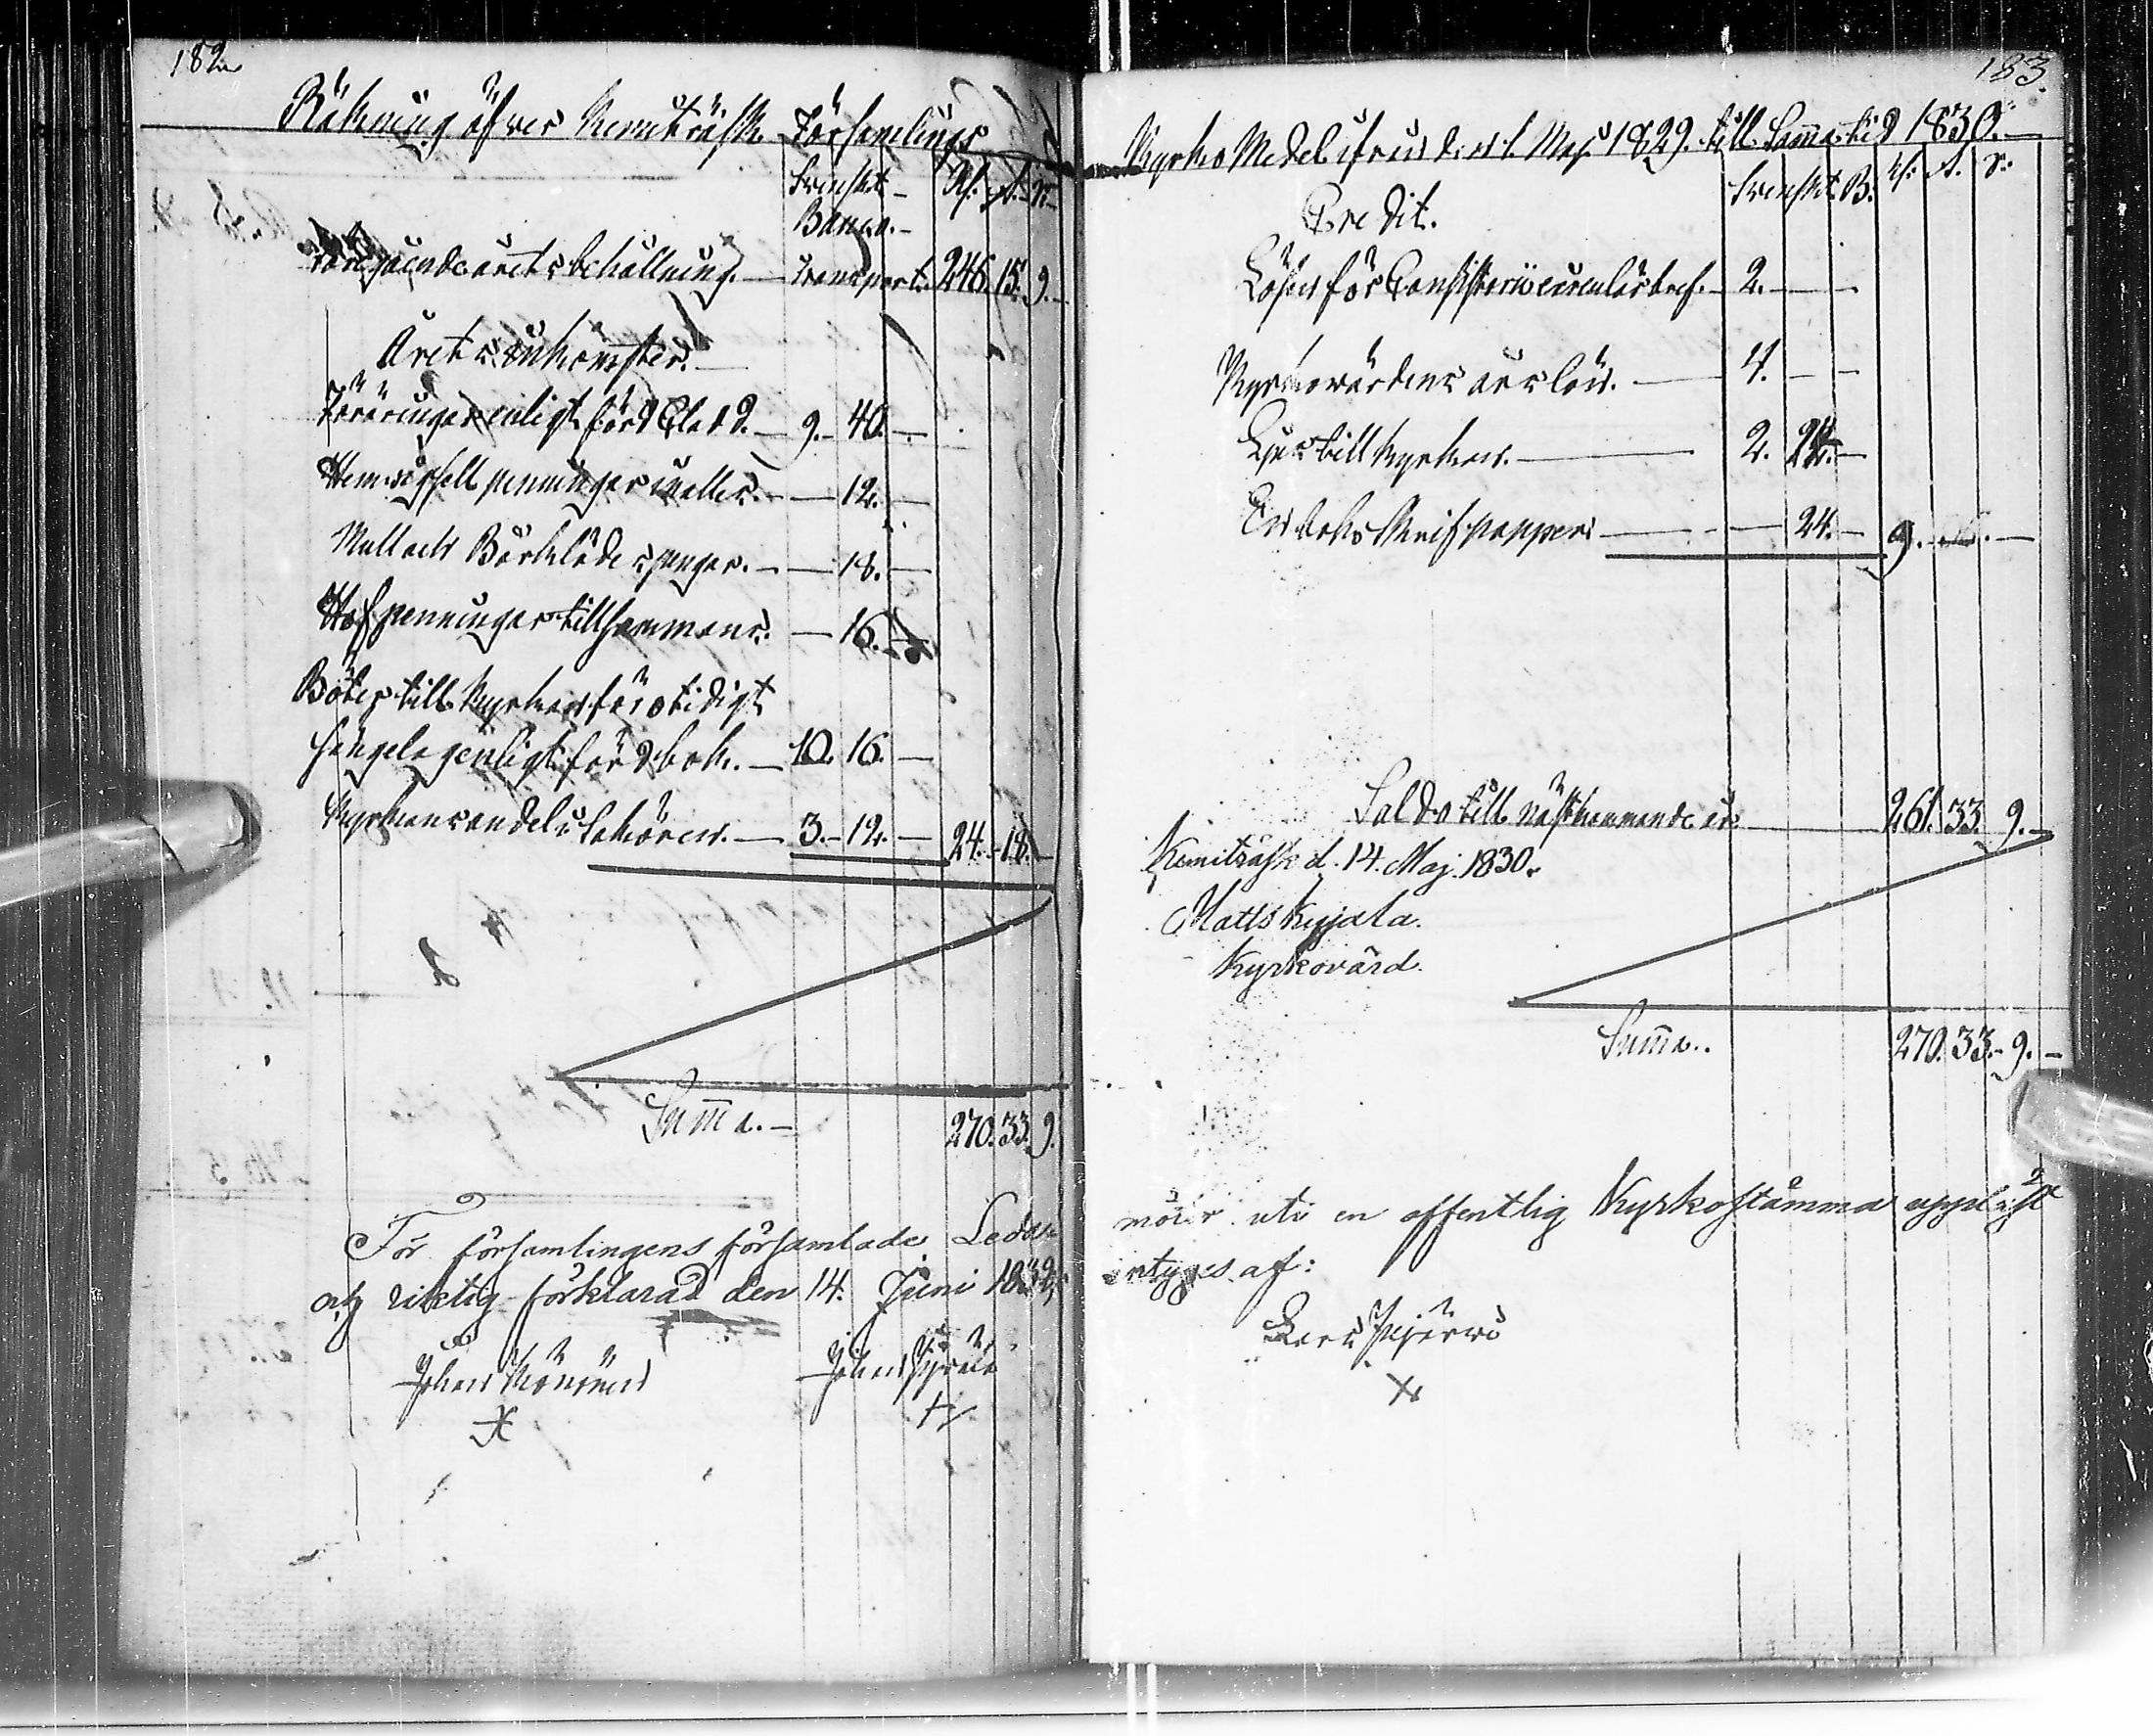 182
Räkning öfver Kemiträsk Församlings
Svenskt
Banco.
Rs. s. r.
Föregående årets behållning. — Transport. 246. 15. 9.
Årets inkomster.
Föräringar enligt förd Cladd. — 9. — 40. —
penningar — 12. —
Mull och Bårkläds pengar. — 18. —
Hafpenningar tillsammans. — 16. —
Böter till Kyrkan för otidigt
sängelag enligt förd bok. — 10. 16. —
Kyrkans andel i Sakören. — 3. — 12. — 24. — 18. —
Summa. — 270. 33. 9.
För församlingens församlade Leda-
och riktig förklarad den 14. Juni 1832,
Johan Mönönen
Johan
183.
Kyrko Medel ifrån den 1 Maj 1829. till Samma tid 1830. —
Credit.
Svenskt. B. rs. s. r.
Lösen för Consistorii circulärbref. — 2. — —
Kyrkovärdens årslön. — 4. — —
Ljus till kyrkan. — 2. 24. —
En bok Skrifpapper — 24. — 9. — —
Saldo till nästkommande år 261. 33. 9. —
Kemiträsk d. 14. Maj. 1830.
Matts Kyjala.
Kyrkovärd.
Summa. 270. 33. — 9. —
möter uti en offentlig Kyrkostämma uppläst
intyges af:
Lars Pejärvi